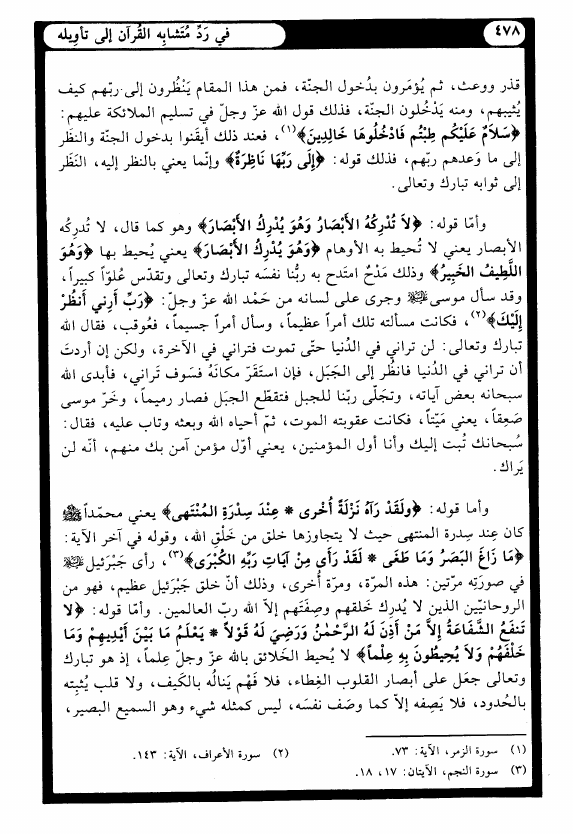 ٤٧٨
في رَدِّ مُتَشابِه القُرآن إلى تأوِيله
قذر ووعث، ثم يُؤمَرون بدُخول الجنّة، فمن هذا المقام يَنْظُرون إلى ربّهم كيف
يُثيبهم، ومنه يَدْخُلون الجنّة، فذلك قول الله عزّ وجلّ في تسليم الملائكة عليهم:
﴿سَلاَمٌ عَلَيْكُم طِبْتُم فَادْخُلُوهَا خَالِدِينَ﴾(١)، فعند ذلك أيقَنوا بدخول الجنّة والنظَر
إلى ما وَعدهم ربّهم، فذلك قوله: ﴿إِلَى رَبِّهَا نَاظِرَةٌ﴾ وإنّما يعني بالنظر إليه، النَظَر
إلى ثوابه تبارك وتعالى.
وأمّا قوله: ﴿لاَ تُدْرِكُهُ الأَبْصَارُ وَهُوَ يُدْرِكُ الأَبْصَارَ﴾ وهو كما قال، لا تُدرِكه
الأبصار يعني لا تُحيط به الأوهام ﴿وَهُوَ يُدْرِكُ الأَبْصَارَ﴾ يعني يُحيط بها ﴿وَهُوَ
اللَّطِيفُ الخَبِيرُ﴾ وذلك مَدْحٌ امتَدح به ربُّنا نفسَه تبارك وتعالى وتقدّس عُلوّاً كبيراً،
وقد سأل موسى ﷺ وجرى على لسانه من حَمْد الله عزّ وجلّ: ﴿رَبِّ أَرِنِي أَنظُرْ
إِلَيْكَ﴾(٢)، فكانت مسألته تلك أمراً عظيماً، وسأل أمراً جسيماً، فعُوقب، فقال الله
تبارك وتعالى: لن تراني في الدُنيا حتّى تموت فتراني في الآخرة، ولكن إن أردتَ
أن تراني في الدُنيا فانظُر إلى الجَبَل، فإن استَقَرّ مكانَهُ فسَوف تَراني، فأبدى الله
سبحانه بعض آياته، وتجَلّى ربّنا للجبل فتقطّع الجبَل فصار رميماً، وخَرّ موسى
صَعِقاً، يعني مَيّتاً، فكانت عقوبته الموت، ثمّ أحياه الله وبعثه وتاب عليه، فقال:
سُبحانك تُبت إليك وأنا أول المؤمنين، يعني أوّل مؤمن آمن بك منهم، أنّه لن
يَراك.
وأما قوله: ﴿ولَقَدْ رَآهُ نَزْلَةً أُخْرى * عِنْدَ سِدْرَةِ المُنْتَهى﴾ يعني محمّداً ﷺ
كان عِند سِدرة المنتهى حيث لا يتجاوزها خلق من خَلْقِ الله، وقوله في آخر الآية:
﴿مَا زَاغَ البَصَرُ وَمَا طَغَى * لَقَدْ رَأَى مِنْ آيَاتِ رَبِّهِ الكُبْرَى﴾(٣)، رأى جَبْرَئيل ﷺ
في صورَتِه مرّتين: هذه المرّة، ومرّة أُخرى، وذلك أنّ خلق جَبْرَئيل عظيم، فهو من
الروحانيّين الذين لا يُدرك خَلقهم وصِفَتَهم إلاّ الله ربّ العالمين. وأمّا قوله: ﴿لا
تَنفَعُ الشَّفَاعَةُ إِلاَّ مَنْ أَذِنَ لَهُ الرَّحْمٰنُ وَرَضِيَ لَهُ قَوْلاً * يَعْلَمُ مَا بَيْنَ أَيْدِيهِمْ وَمَا
خَلْفَهُمْ وَلاَ يُحِيطُونَ بِهِ عِلْماً﴾ لا يُحيط الخَلائق بالله عزّ وجلّ عِلماً، إذ هو تبارك
وتعالى جعَل على أبصار القلوب الغِطاء، فلا فَهم يَنالُه بالكَيف، ولا قلب يُثبِته
بالحُدود، فلا يَصِفه إلاّ كما وصَف نفسَه، ليس كمثله شيء وهو السميع البصير،
(١) سورة الزمر، الآية: ٧٣.
(٢) سورة الأعراف، الآية: ١٤٣.
(٣) سورة النجم، الآيتان: ١٧، ١٨.